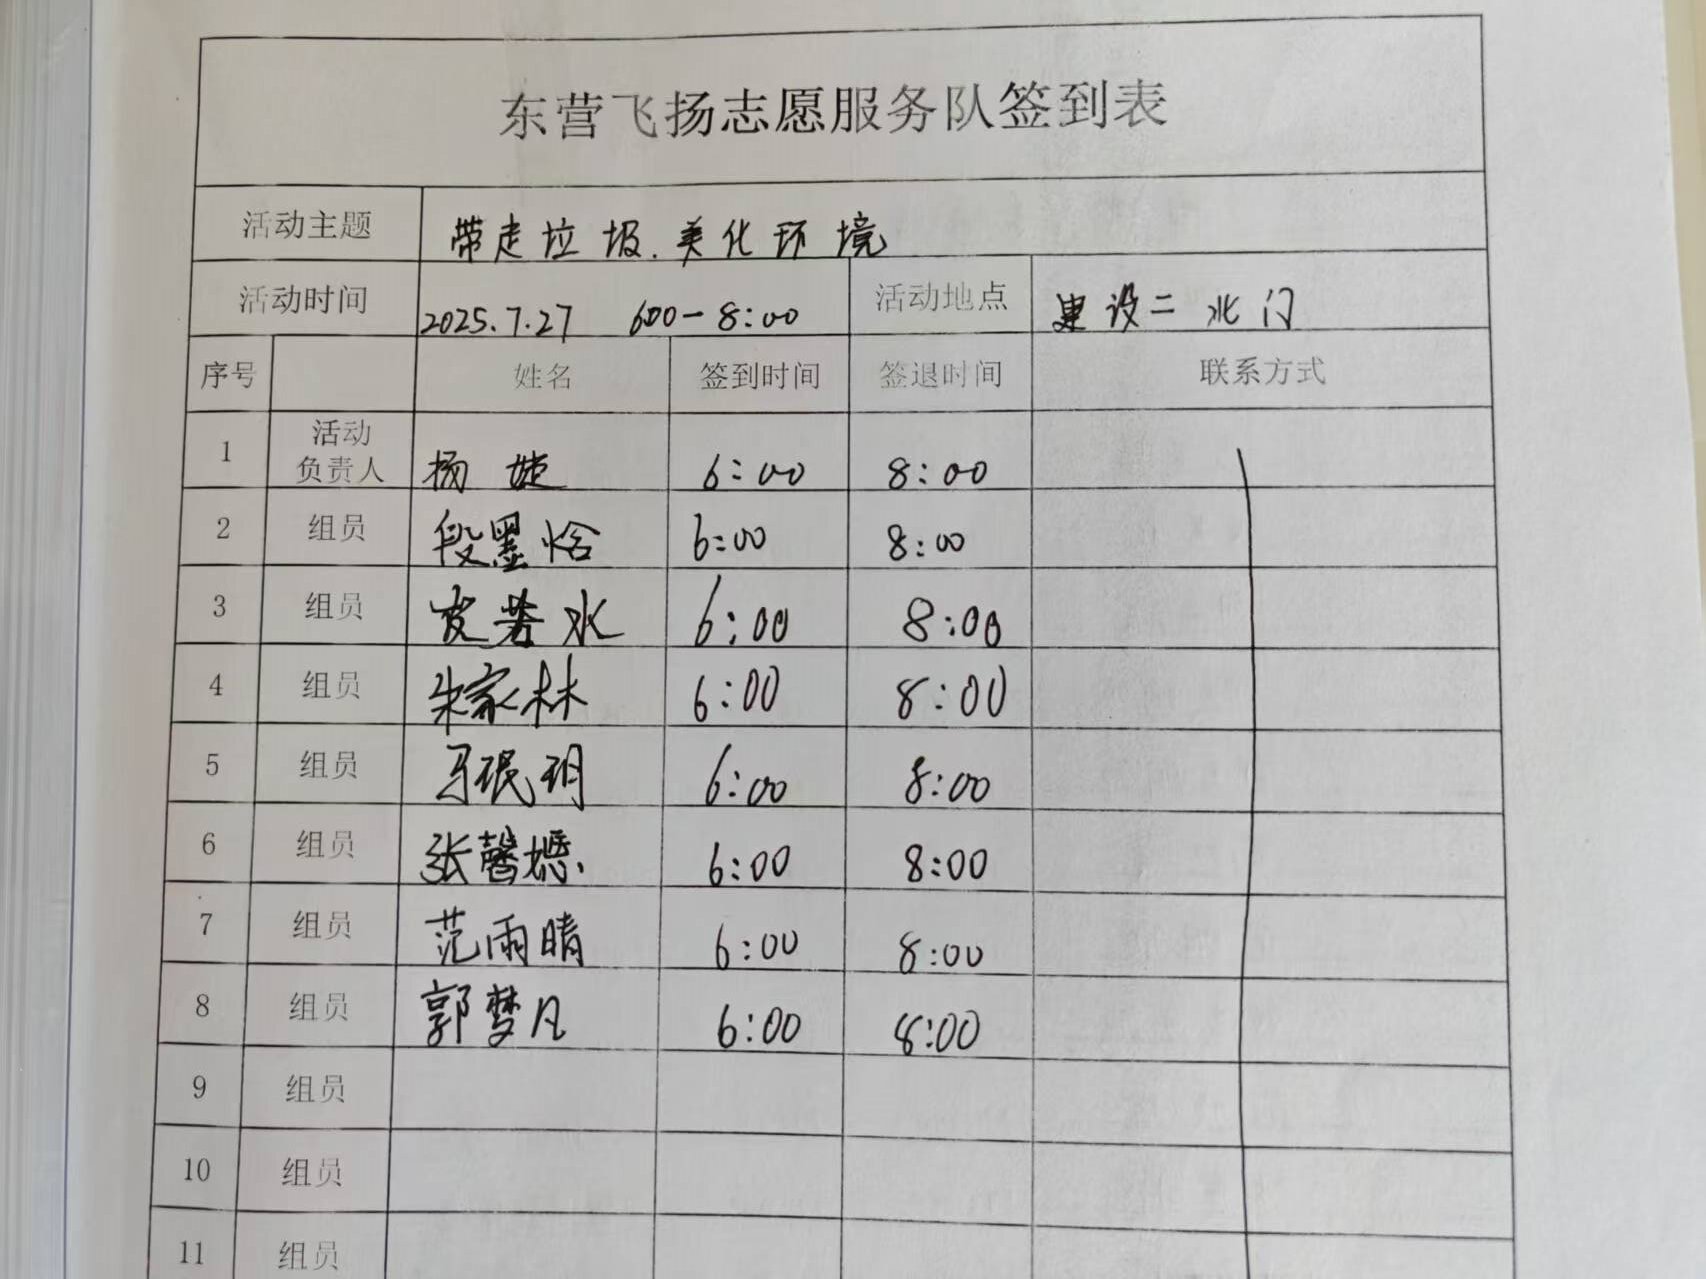 东营飞扬志愿服务队签到表
活动主题 带走垃圾.美化环境
活动时间 2025.7.27 600-8:00 活动地点 建设二北门
序号 姓名 签到时间 签退时间 联系方式
1 活动负责人 杨婕 6:00 8:00
2 组员 段墨恰 6:00 8:00
3 组员 皮若水 6:00 8:00
4 组员 朱家林 6:00 8:00
5 组员 马珉玥 6:00 8:00
6 组员 张馨 6:00 8:00
7 组员 范雨晴 6:00 8:00
8 组员 郭梦凡 6:00 8:00
9 组员
10 组员
11 组员